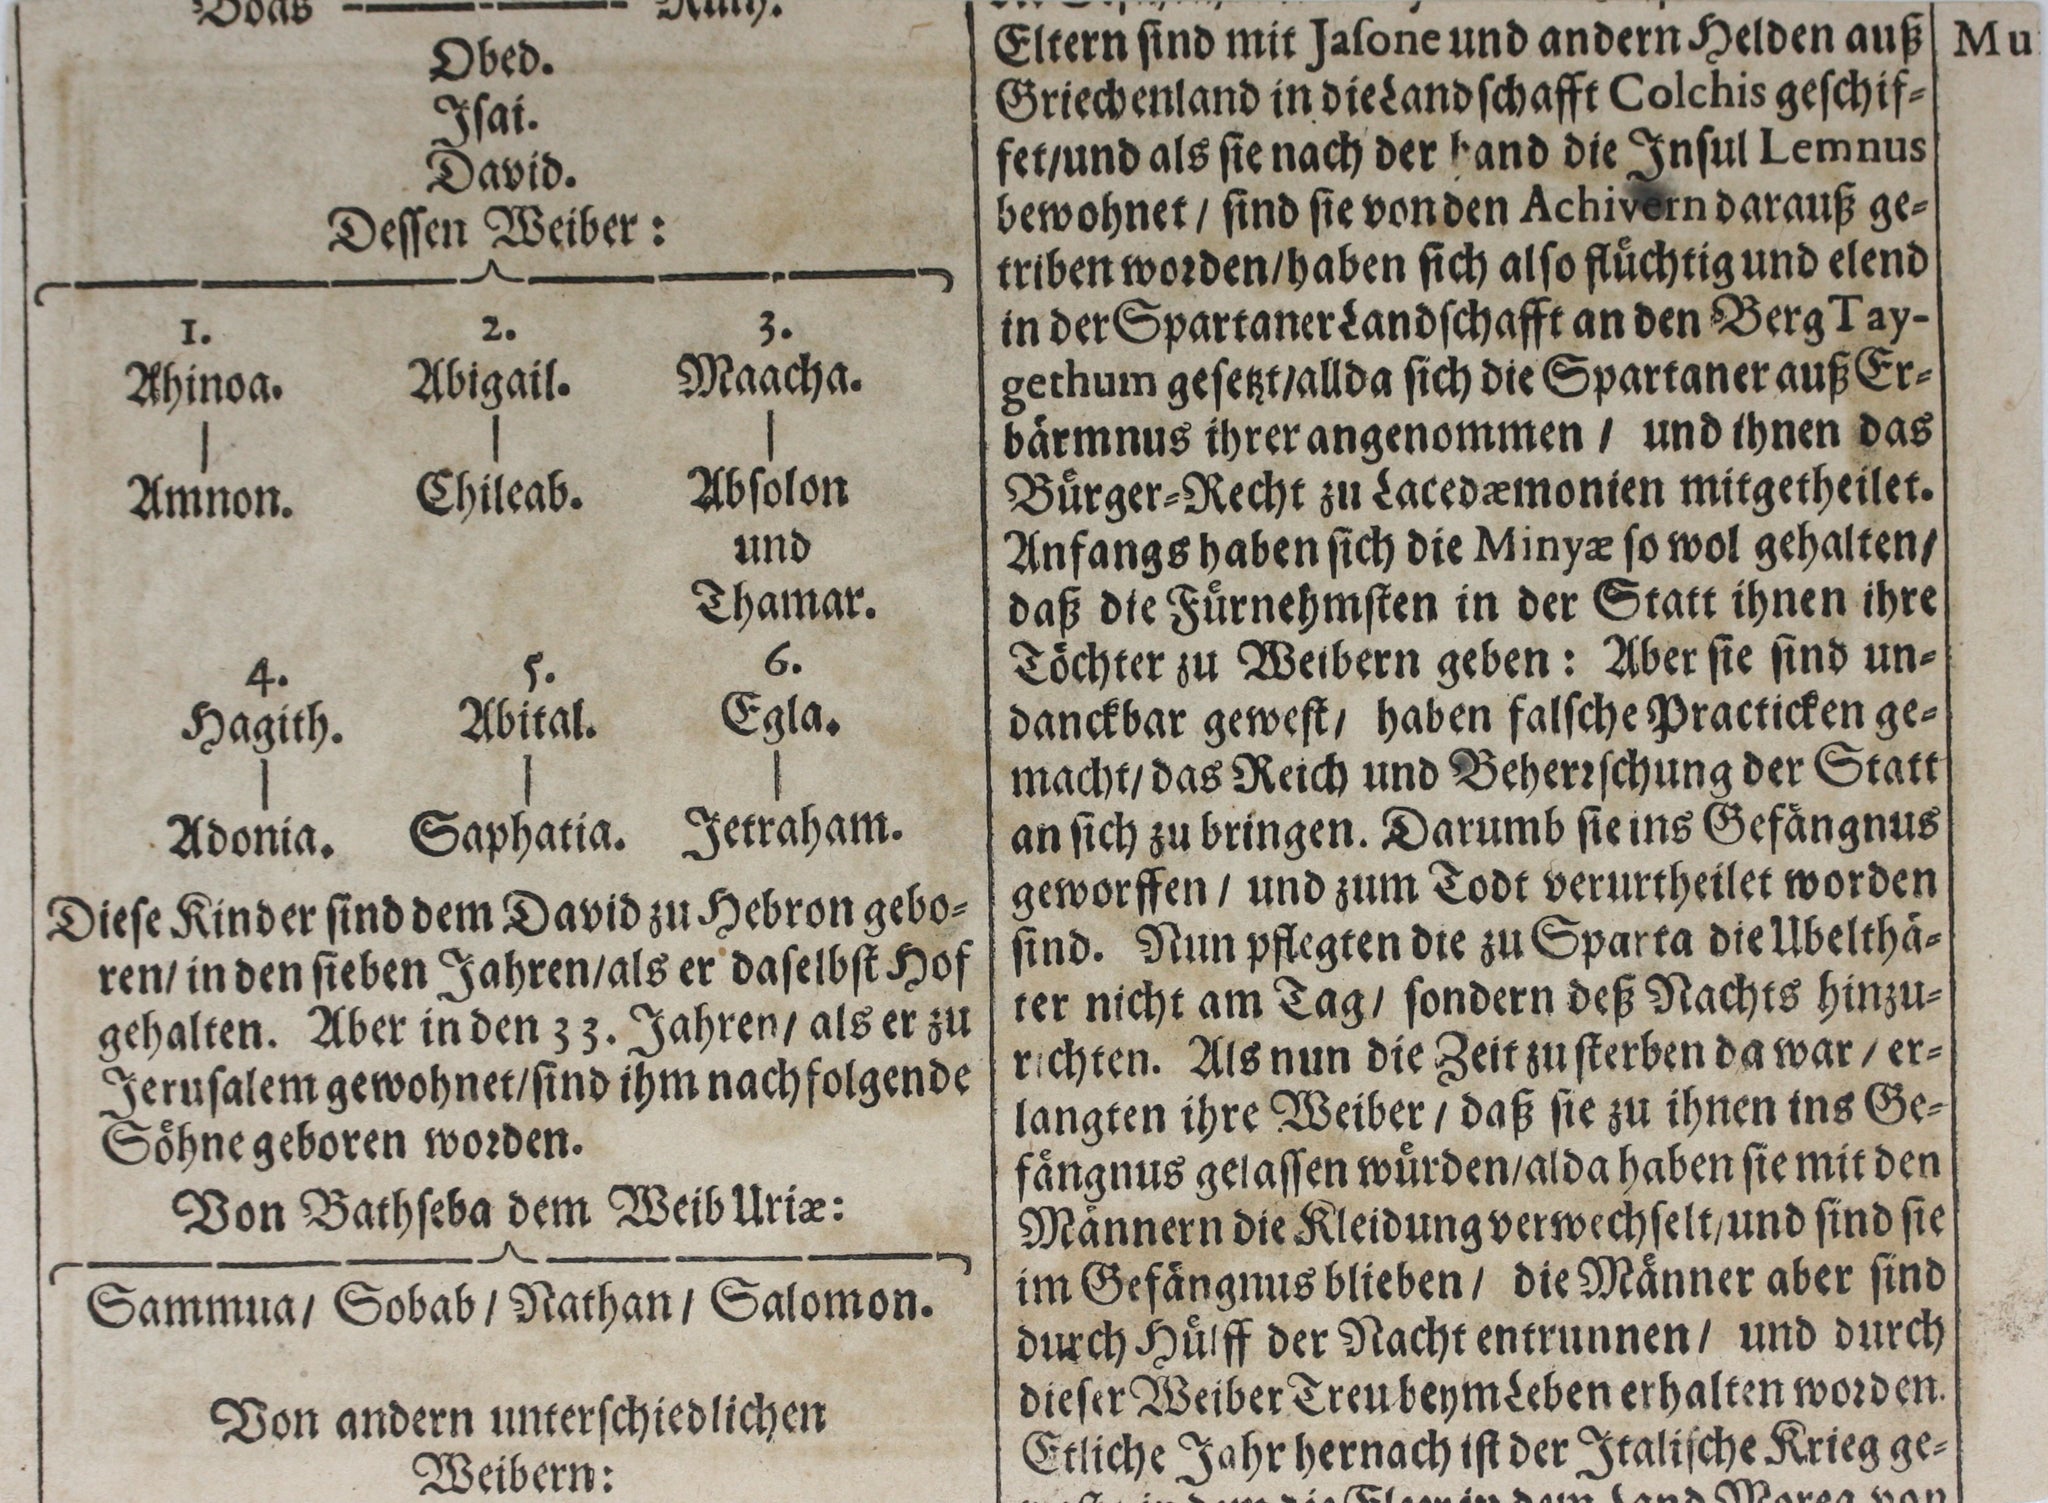 Boas Ruth.
Obed.
Jſai.
David.
Deſſen Weiber:
1. 2. 3.
Ahinoa. Abigail. Maacha.
Amnon. Chileab. Abſolon
und
Thamar.
4. 5. 6.
Hagith. Abital. Egla.
Adonia. Saphatia. Jetraham.
Dieſe Kinder ſind dem David zu Hebron gebo-
ren/ in den ſieben Jahren/als er daſelbſt Hof
gehalten. Aber in den 33. Jahren/ als er zu
Jeruſalem gewohnet/ſind ihm nachfolgende
Soͤhne geboren worden.
Von Bathſeba dem Weib Uriæ:
Sammua/ Sobab/ Nathan/ Salomon.
Von andern unterſchiedlichen
Weibern:
Eltern ſind mit Jaſone und andern Helden auß
Griechenland in die Landſchafft Colchis geſchif-
fet/und als ſie nach der hand die Jnſul Lemnus
bewohnet/ ſind ſie von den Achivern darauß ge-
triben worden/haben ſich alſo fluͤchtig und elend
in der Spartaner Landſchafft an den Berg Tay-
gethum geſetzt/allda ſich die Spartaner auß Er-
baͤrmnus ihrer angenommen/ und ihnen das
Buͤrger-Recht zu Lacedæmonien mitgetheilet.
Anfangs haben ſich die Minyæ ſo wol gehalten/
daß die Fuͤrnehmſten in der Statt ihnen ihre
Toͤchter zu Weibern geben: Aber ſie ſind un-
danckbar geweſt/ haben falſche Practicken ge-
macht/das Reich und Beherꝛſchung der Statt
an ſich zu bringen. Darumb ſie ins Gefaͤngnus
geworffen/ und zum Todt verurtheilet worden
ſind. Nun pflegten die zu Sparta die Ubelthaͤ-
ter nicht am Tag/ ſondern deß Nachts hinzu-
richten. Als nun die Zeit zu ſterben da war/ er-
langten ihre Weiber/ daß ſie zu ihnen ins Ge-
faͤngnus gelaſſen wuͤrden/alda haben ſie mit den
Maͤnnern die Kleidung verwechſelt/und ſind ſie
im Gefaͤngnus blieben/ die Maͤnner aber ſind
durch Huͤlff der Nacht entrunnen/ und durch
dieſer Weiber Treu beym Leben erhalten worden.
Etliche Jahr hernach iſt der Jtaliſche Krieg ge-
Mu